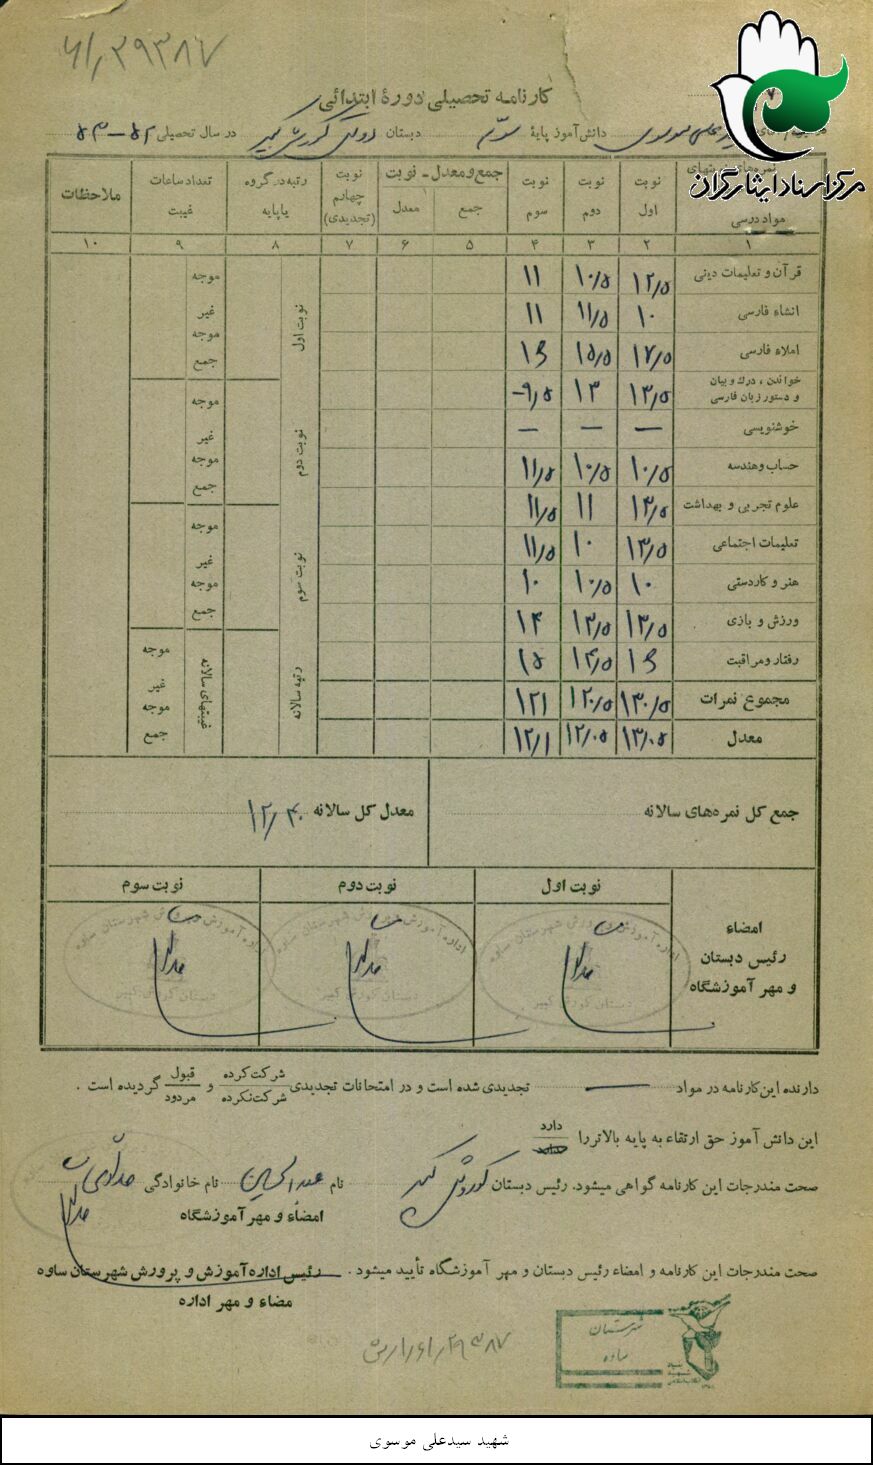 ۶۱٫۲۹۳۸۷
مرکز اسناد ایثارگران
کارنامه تحصیلی دورهٔ ابتدائی
موسوی دانش‌آموز پایهٔ سوم دبستان دولتی کورش کبیر در سال تحصیلی ۵۲-۵۳
مواد درسی نوبت اول نوبت دوم نوبت سوم جمع و معدل - نوبت جمع معدل نوبت چهارم (تجدیدی) رتبه در گروه یا پایه تعداد ساعات غیبت ملاحظات
۱ ۲ ۳ ۴ ۵ ۶ ۷ ۸ ۹ ۱۰
قرآن و تعلیمات دینی ۱۲٫۵ ۱۰٫۵ ۱۱
انشاء فارسی ۱۰ ۱۱٫۵ ۱۱
املاء فارسی ۱۷٫۵ ۱۵٫۵ ۱۶
خواندن ، درک و بیان و دستور زبان فارسی ۱۳٫۵ ۱۳ ۹٫۵
خوشنویسی — — —
حساب و هندسه ۱۰٫۵ ۱۰٫۵ ۱۱٫۵
علوم تجربی و بهداشت ۱۳٫۵ ۱۱ ۱۱٫۵
تعلیمات اجتماعی ۱۳٫۵ ۱۰ ۱۱٫۵
هنر و کاردستی ۱۰ ۱۰٫۵ ۱۰
ورزش و بازی ۱۳٫۵ ۱۳٫۵ ۱۴
رفتار و مراقبت ۱۶ ۱۴٫۵ ۱۵
مجموع نمرات ۱۳۰٫۵ ۱۲۰٫۵ ۱۲۱
معدل ۱۳٫۰۵ ۱۲٫۰۵ ۱۲٫۱
نوبت اول موجه غیر موجه جمع
نوبت دوم موجه غیر موجه جمع
نوبت سوم موجه غیر موجه جمع
رتبه سالانه غیبتهای سالانه موجه غیر موجه جمع
جمع کل نمره‌های سالانه معدل کل سالانه ۱۲٫۴۰
نوبت اول نوبت دوم نوبت سوم
امضاء
رئیس دبستان
و مهر آموزشگاه
اداره آموزش و پرورش شهرستان ساوه
دبستان کورش کبیر
دارنده این کارنامه در مواد — تجدیدی شده است و در امتحانات تجدیدی شرکت کرده شرکت نکرده و قبول مردود گردیده است .
این دانش آموز حق ارتقاء به پایه بالاتر را دارد ندارد
صحت مندرجات این کارنامه گواهی میشود. رئیس دبستان کوروش کبیر نام عبدالحسین نام خانوادگی
امضاء و مهر آموزشگاه
صحت مندرجات این کارنامه و امضاء رئیس دبستان و مهر آموزشگاه تأیید میشود . رئیس اداره آموزش و پرورش شهرستان ساوه
مضاء و مهر اداره
شهرستان
ساوه
شهید سیدعلی موسوی